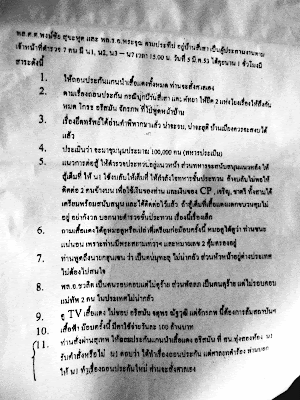 พล.ต.ต.พงษ์ชัย สุขะพูล และ พล.ร.อ.พระจุณ ตามประทีป อยู่บ้านสี่เสา เป็นผู้ประสานงานตาม
เจ้าหน้าที่ตำรวจ 7 คน มี น1, น2, น3 – น7 เวลา 15.00 น. วันที่ 5 มี.ค.53 ได้คุยนาน 1 ชั่วโมงมี
สาระดังนี้
1. ให้ถอนประกันแกนนำเสื้อแดงทั้งหมด ท่านจะสั่งศาลเอง
2. ตามเรื่องถอนประกัน กรณีบุกบ้านสี่เสา และ พัทยา ให้ยึด 2 แห่ง
หมด ไกรธ อริสมันต์ จักรภพ ที่ไปพูดหน้าบ้าน
3. เรื่องยึดทรัพย์ได้อ่านคำพิพากษาแล้ว บ้านเมืองควรจะสงบได้
แล้ว
4. ประเมินว่า จะมาชุมนุมประมาณ 100,000 คน (ทหารประเมิน)
5. แนวการต่อสู้ ให้ตำรวจประกบอยู่แนวหน้า ส่วนทหารจะสนับสนุนแนวหลัง ให้
สู้เต็มที่ ให้ น1 ใช้
ติดต่อ 2 คนข้างบน เพื่อใช้เงินของท่าน และเงินของ CP , เจริญ, ชาตรี ทั้งสามได้
เตรียมพร้อมสนับสนุน และได้ติดต่อไว้แล้ว ถ้าสู้เต็มที่เสื้อแดง
อยู่ อย่ากังวล บอกนายตำรวจชั้นประทวน เรื่องนี้เรื่องเล็ก
6. ถามเสื้อแดงได้คุยหมอดูหรือเปล่า หมอดูได้ดูว่า ท่านชนะ
แน่นอน เพราะท่านมีพระสยามเทวาฯ และหมายเลข 2 คุ้มครองอยู่
7. ท่านพูดถึงนายกฮุนเซน ว่า เป็น ไม่น่ากลัว ส่วนหัวหน้าอยู่ต่างประเทศ
ไม่ต้องไปสนใจ
8. พล.อ.ชวลิต เป็นคนรอบคอบแต่ไม่ดุร้าย ส่วนพัลลภ เป็นคนดุร้าย แต่ไม่รอบคอบ
แม่ทัพ 2 คน ในประเทศไม่น่ากลัว
9. ดู TV เสื้อแดง ไม่ชอบ อริสมันต์ จตุพร ณัฐวุฒิ แต่จักรภพ นี้ต้องการล้มสถาบันฯ
10. เสื้อฟ้า น้อยครั้งนี้ มีค่าใช้จ่ายวันละ 100 ล้านบาท
11. ท่านสั่งผ่านสุเทพ ให้ถอนประกันแกนนำเสื้อแดง อริสมันต์ ที่ สน.ทุ่งสองห้อง น1
รับคำสั่งหรือไม่ น1 ตอบว่า ได้ทำเรื่องถอนประกัน แต่ศาลยกคำร้อง ท่านบอก
ให้ น1 ทำเรื่องถอนประกันใหม่ ท่านจะสั่งศาลเอง